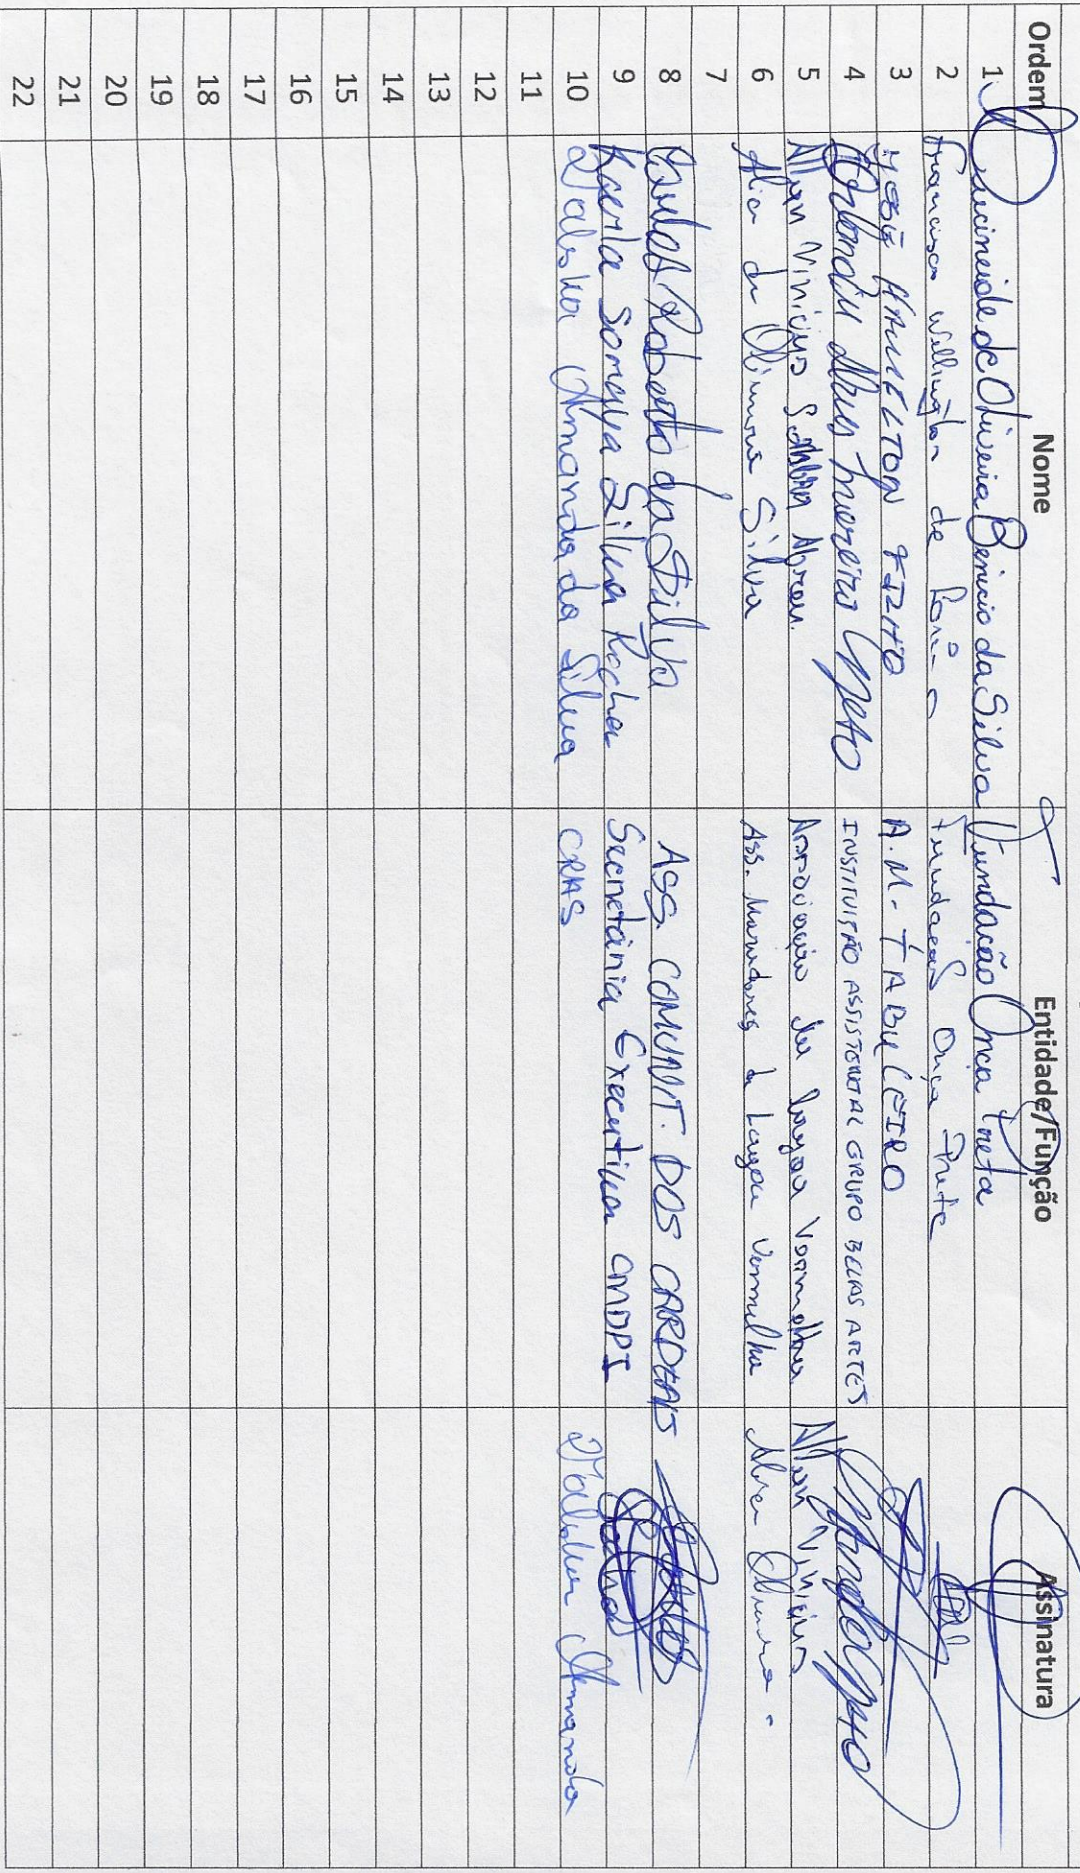 Ordem Nome Entidade/Função Assinatura
1 de Oliveira Benicio da Silva Fundação Onça Preta
2 Francisco Wellington de Fundação Onça Preta
3 JOSÉ HAMILTON FILHO A.M. TABULEIRO
4 Neto INSTITUIÇÃO ASSISTENCIAL GRUPO BELAS ARTES
5 Allan Vinicius Abreu. Associação da Lagoa Vermelha Allan Vinicius
6 de Oliveira Silva Ass. Moradores da Lagoa Vermelha
7
8 Carlos Roberto da Silva ASS. COMUNIT. DOS CARDEAIS
9 Karla Somaya Silva Rocha Secretária Executiva CMDPI
10 Waleska Amanda da Silva CRAS Waleska Amanda
11
12
13
14
15
16
17
18
19
20
21
22